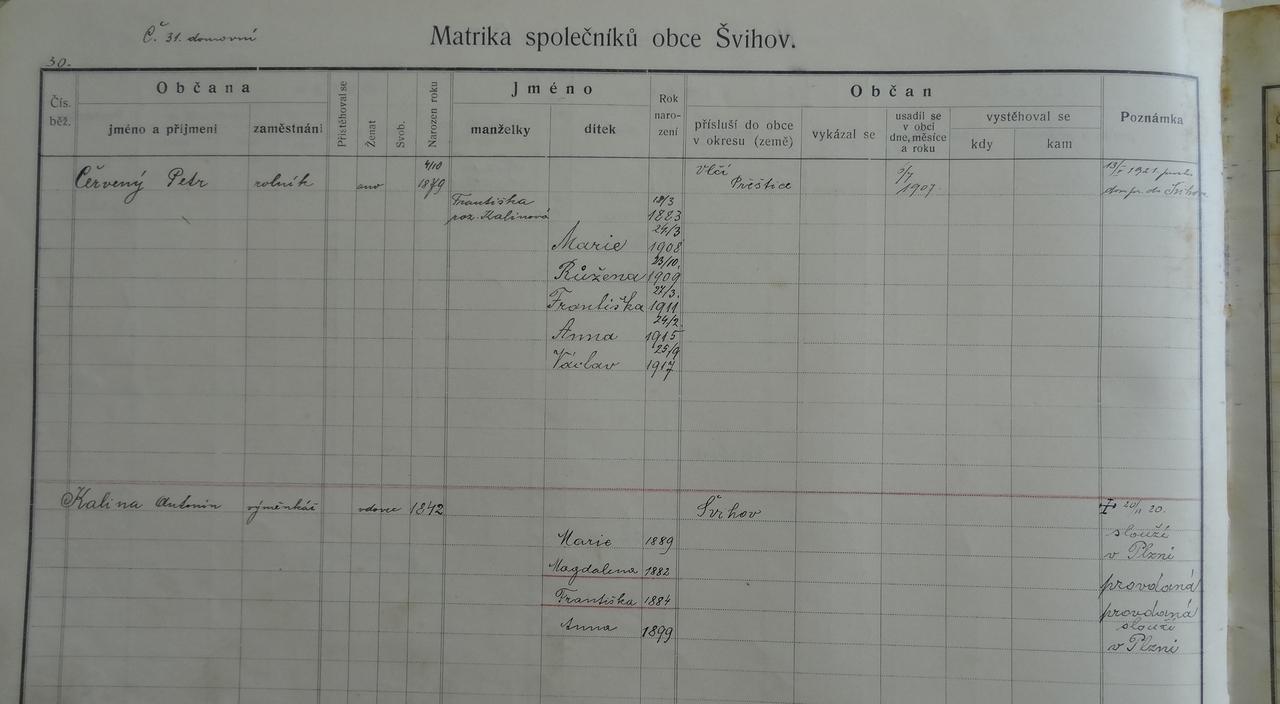 Č 31. domovní
Matrika společníků obce Švihov.
30.
Čís. běž.
Občana
jméno a příjmení
zaměstnání
Přistěhoval se
Ženat
Svob.
Narozen roku
Jméno
manželky
dítek
Rok naro-zení
Občan
přísluší do obce v okresu (země)
vykázal se
usadil se v obci dne, měsíce a roku
vystěhoval se
kdy
kam
Poznámka
Červený Petr rolník ano 4/10 1879 Vlčí Přeštice 5/7 1907 13/5 1921
do Švihova
Františka roz. Kalinová 18/3 1883
Marie 24/3 1908
Růžena 23/10 1909
Františka 27/3. 1911
Anna 24/2 1915
Václav 25/9 1917
Kalina Antonín výměnkář vdovec 1842 Švihov 20/11 20.
Marie 1889 slouží v Plzni
Magdalena 1882 provdaná
Františka 1884 provdaná
Anna 1899 slouží v Plzni